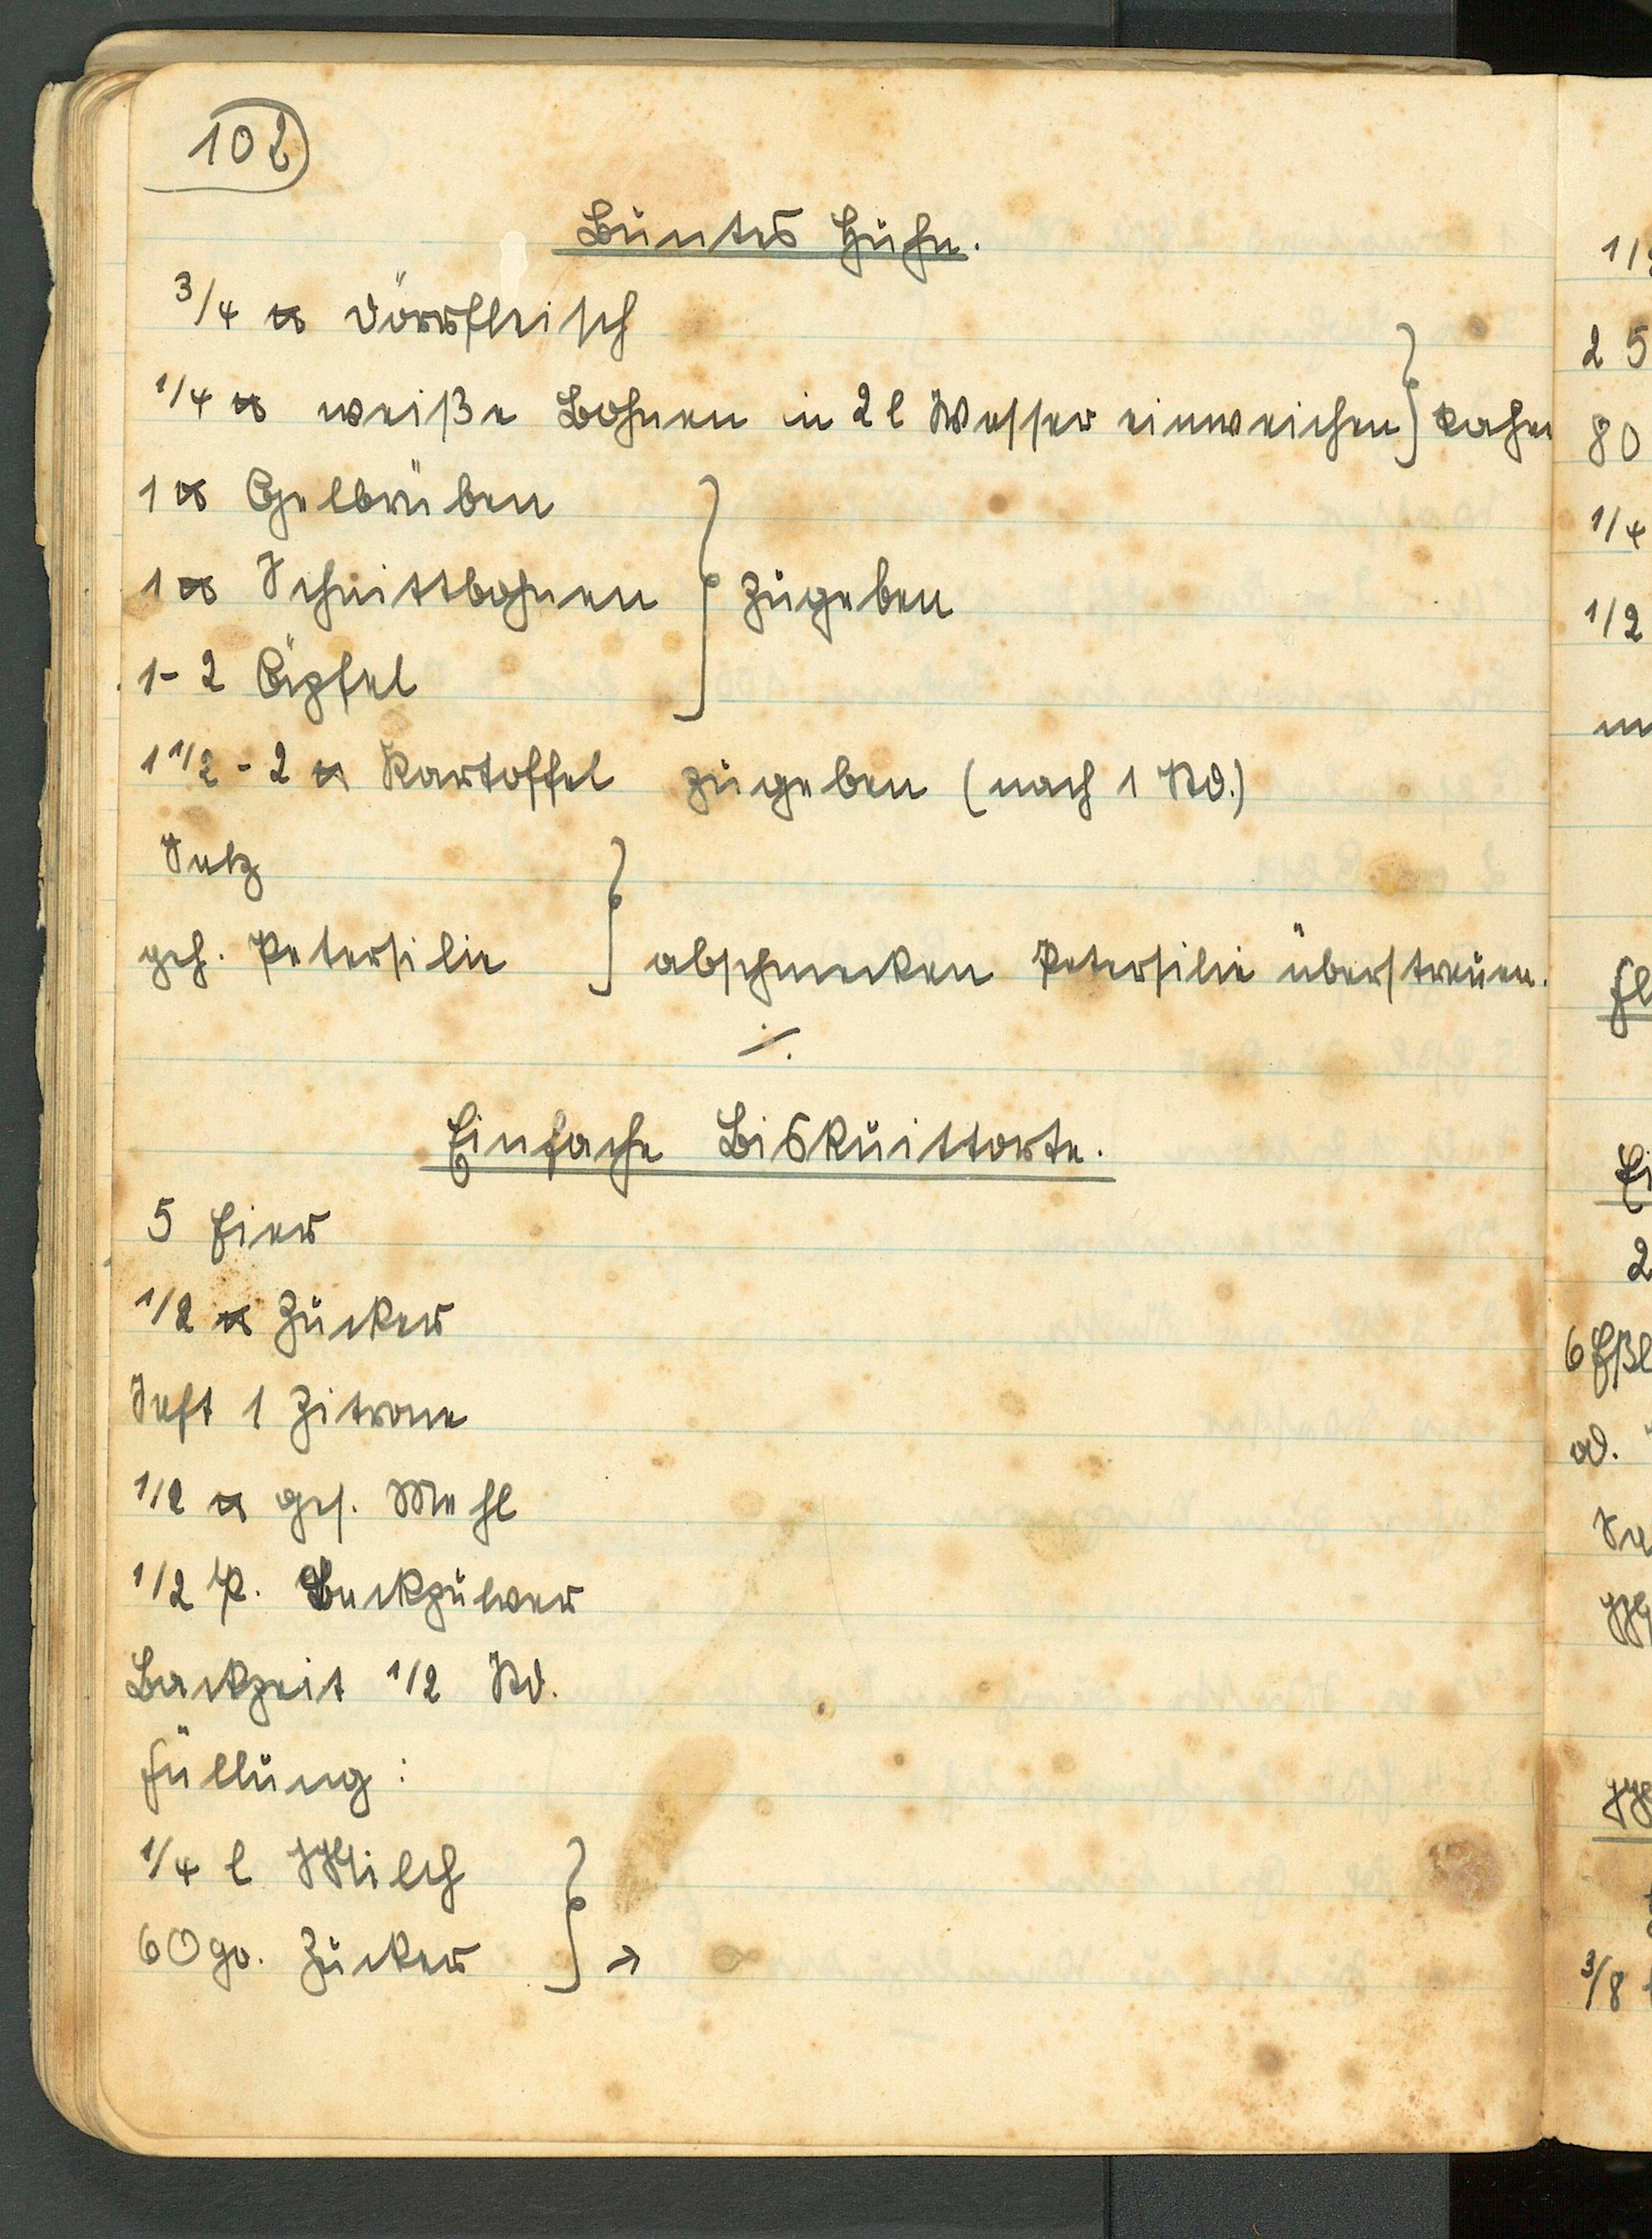 102
Buntes Huhn.
3/4 ℔ Dörrfleisch
1/4 ℔ weiße Bohnen in 2 l Wasser einweichen }
1 ℔ Gelbrüben
1 ℔ Schnittbohnen } zugeben
1-2 Äpfel
1 1/2 - 2 ℔ Kartoffel zugeben (nach 1 Std.)
Salz
geh. Petersilie } abschmecken Petersilie überstreuen.
./.
Einfache Biskuittorte.
5 Eier
1/2 ℔ Zucker
Saft 1 Zitrone
1/2 ℔ ges. Mehl
1/2 P. Backpulver
Backzeit 1/2 Std.
Füllung:
1/4 l Milch
60 gr. Zucker } →
25
80
1/4
1/2
2
od.
3/8